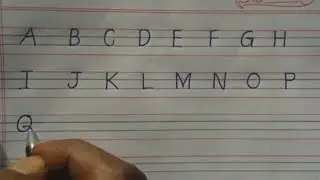 A B C D E F G H
I J K L M N O P
Q